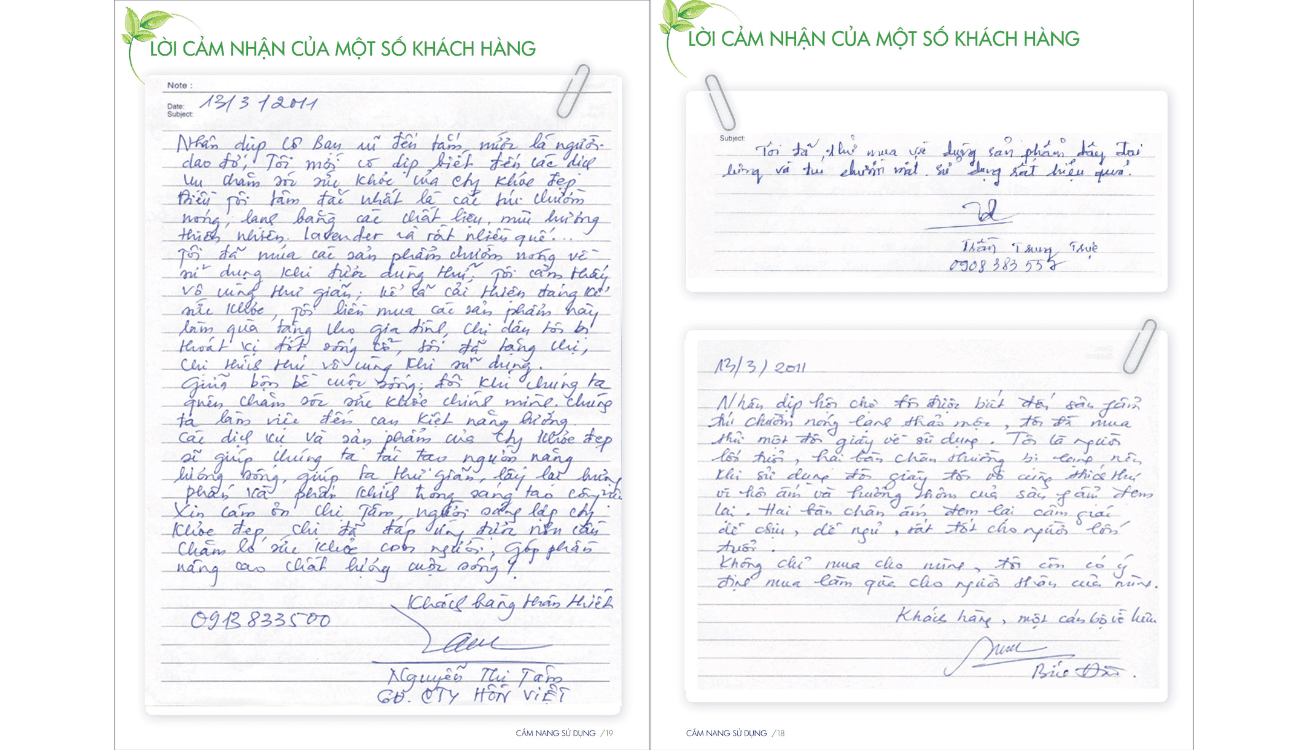 LỜI CẢM NHẬN CỦA MỘT SỐ KHÁCH HÀNG
Note :
Date: 13/3/2011
Subject:
Nhân dịp cô bạn rủ đến tắm nước lá người
dao đỏ, Tôi mới có dịp biết đến các dịch
vụ chăm sóc sức khỏe của Cty Khỏe đẹp
Điều tôi tâm đắc nhất là các túi chườm
nóng, lạnh bằng các chất liệu, mùi hương
thiên nhiên. lavender và rất nhiều quế...
Tôi đã mua các sản phẩm chườm nóng về
sử dụng khi được dùng thử, Tôi cảm thấy
vô cùng thư giãn, kể cả cải thiện đáng kể
sức khỏe, Tôi liền mua các sản phẩm này
làm quà tặng cho gia đình, chị dâu tôi bị
thoát vị đốt sống cổ, tôi đã tặng chị,
chị thích thú vô cùng khi sử dụng.
Giữa bộn bề cuộc sống, đôi khi chúng ta
quên chăm sóc sức khỏe chính mình. chúng
ta làm việc đến cạn kiệt năng lượng.
Các dịch vụ và sản phẩm của Cty Khỏe đẹp
sẽ giúp chúng ta tái tạo nguồn năng
lượng sống, giúp ta thư giãn, lấy lại hưng
phấn và phấn khích trong sáng tạo công việc
Xin cám ơn chị Tâm, người sáng lập cty
Khỏe đẹp, chị đã đáp ứng được nhu cầu
chăm lo sức khỏe con người, góp phần
nâng cao chất lượng cuộc sống!
Khách hàng thân thiết
0913833500
Nguyễn Thị Tâm
GĐ. CTY HỒN VIỆT
CẨM NANG SỬ DỤNG /19
LỜI CẢM NHẬN CỦA MỘT SỐ KHÁCH HÀNG
Subject:
Tôi đã thử mua về dụng sản phẩm dây đai
lưng và túi chườm mắt. sử dụng rất hiệu quả.
Trần Trung Trực
0908 383 557
13/3/2011
Nhân dịp hội chợ tôi được biết đến sản phẩm
túi chườm nóng lạnh thảo mộc, tôi đã mua
thử một đôi giày về sử dụng. Tôi là người
lớn tuổi, hai bàn chân thường bị lạnh nên
khi sử dụng đôi giày tôi vô cùng thích thú
vì hơi ấm và hương thơm của sản phẩm đem
lại. Hai bàn chân ấm đem lại cảm giác
dễ chịu, dễ ngủ, rất tốt cho người lớn
tuổi.
Không chỉ mua cho mình, tôi còn có ý
định mua làm quà cho người thân của mình.
Khách hàng, một cán bộ về hưu
CẨM NANG SỬ DỤNG /18